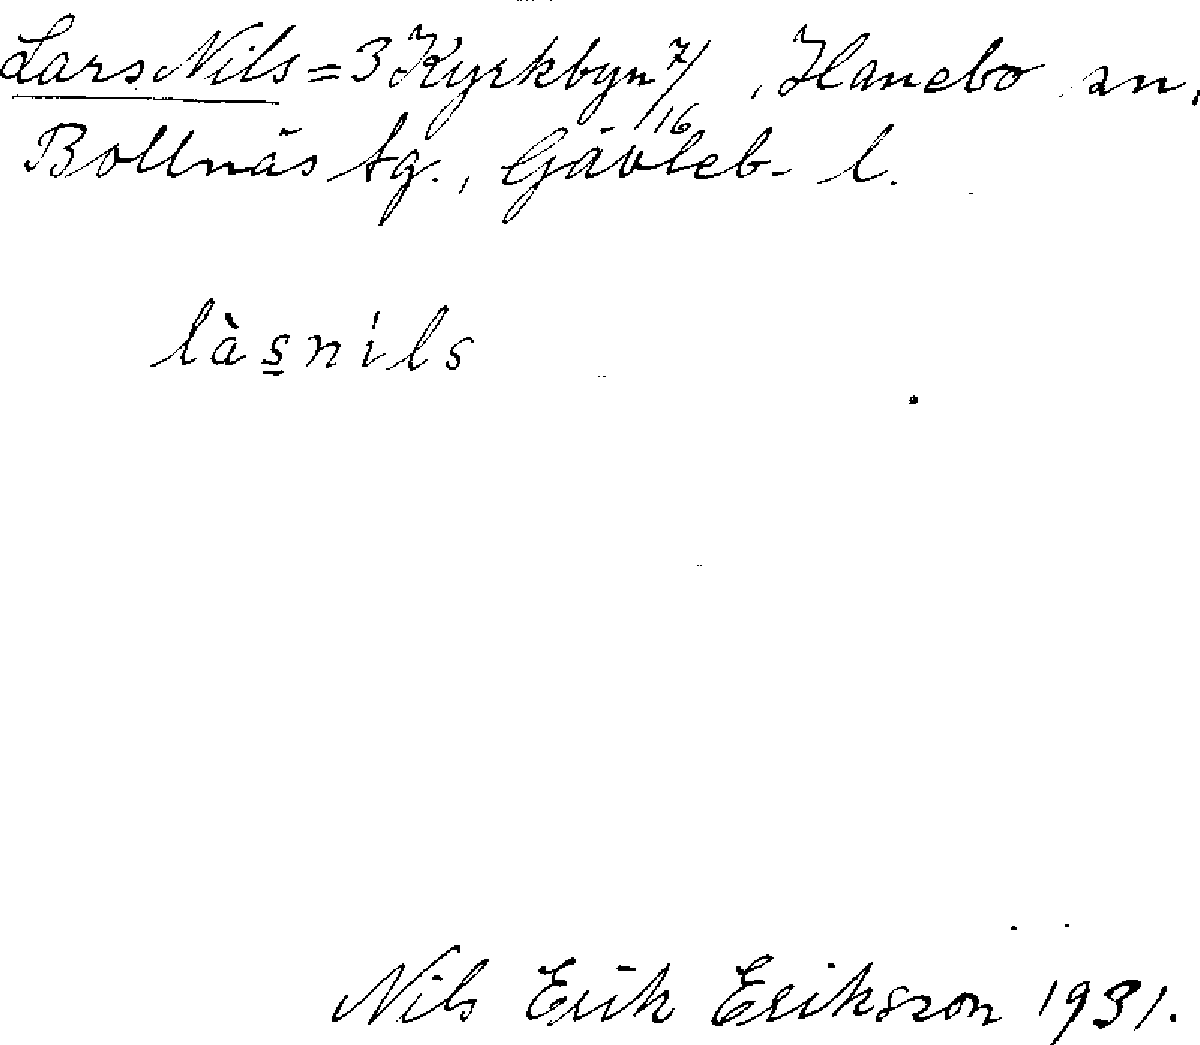 Lars Nils = 3 Kyrkbyn 7/16, Hanebo sn,
Bollnäs tg., Gävleb. l.
làs̲nils
Nils Erik Eriksson 1931.